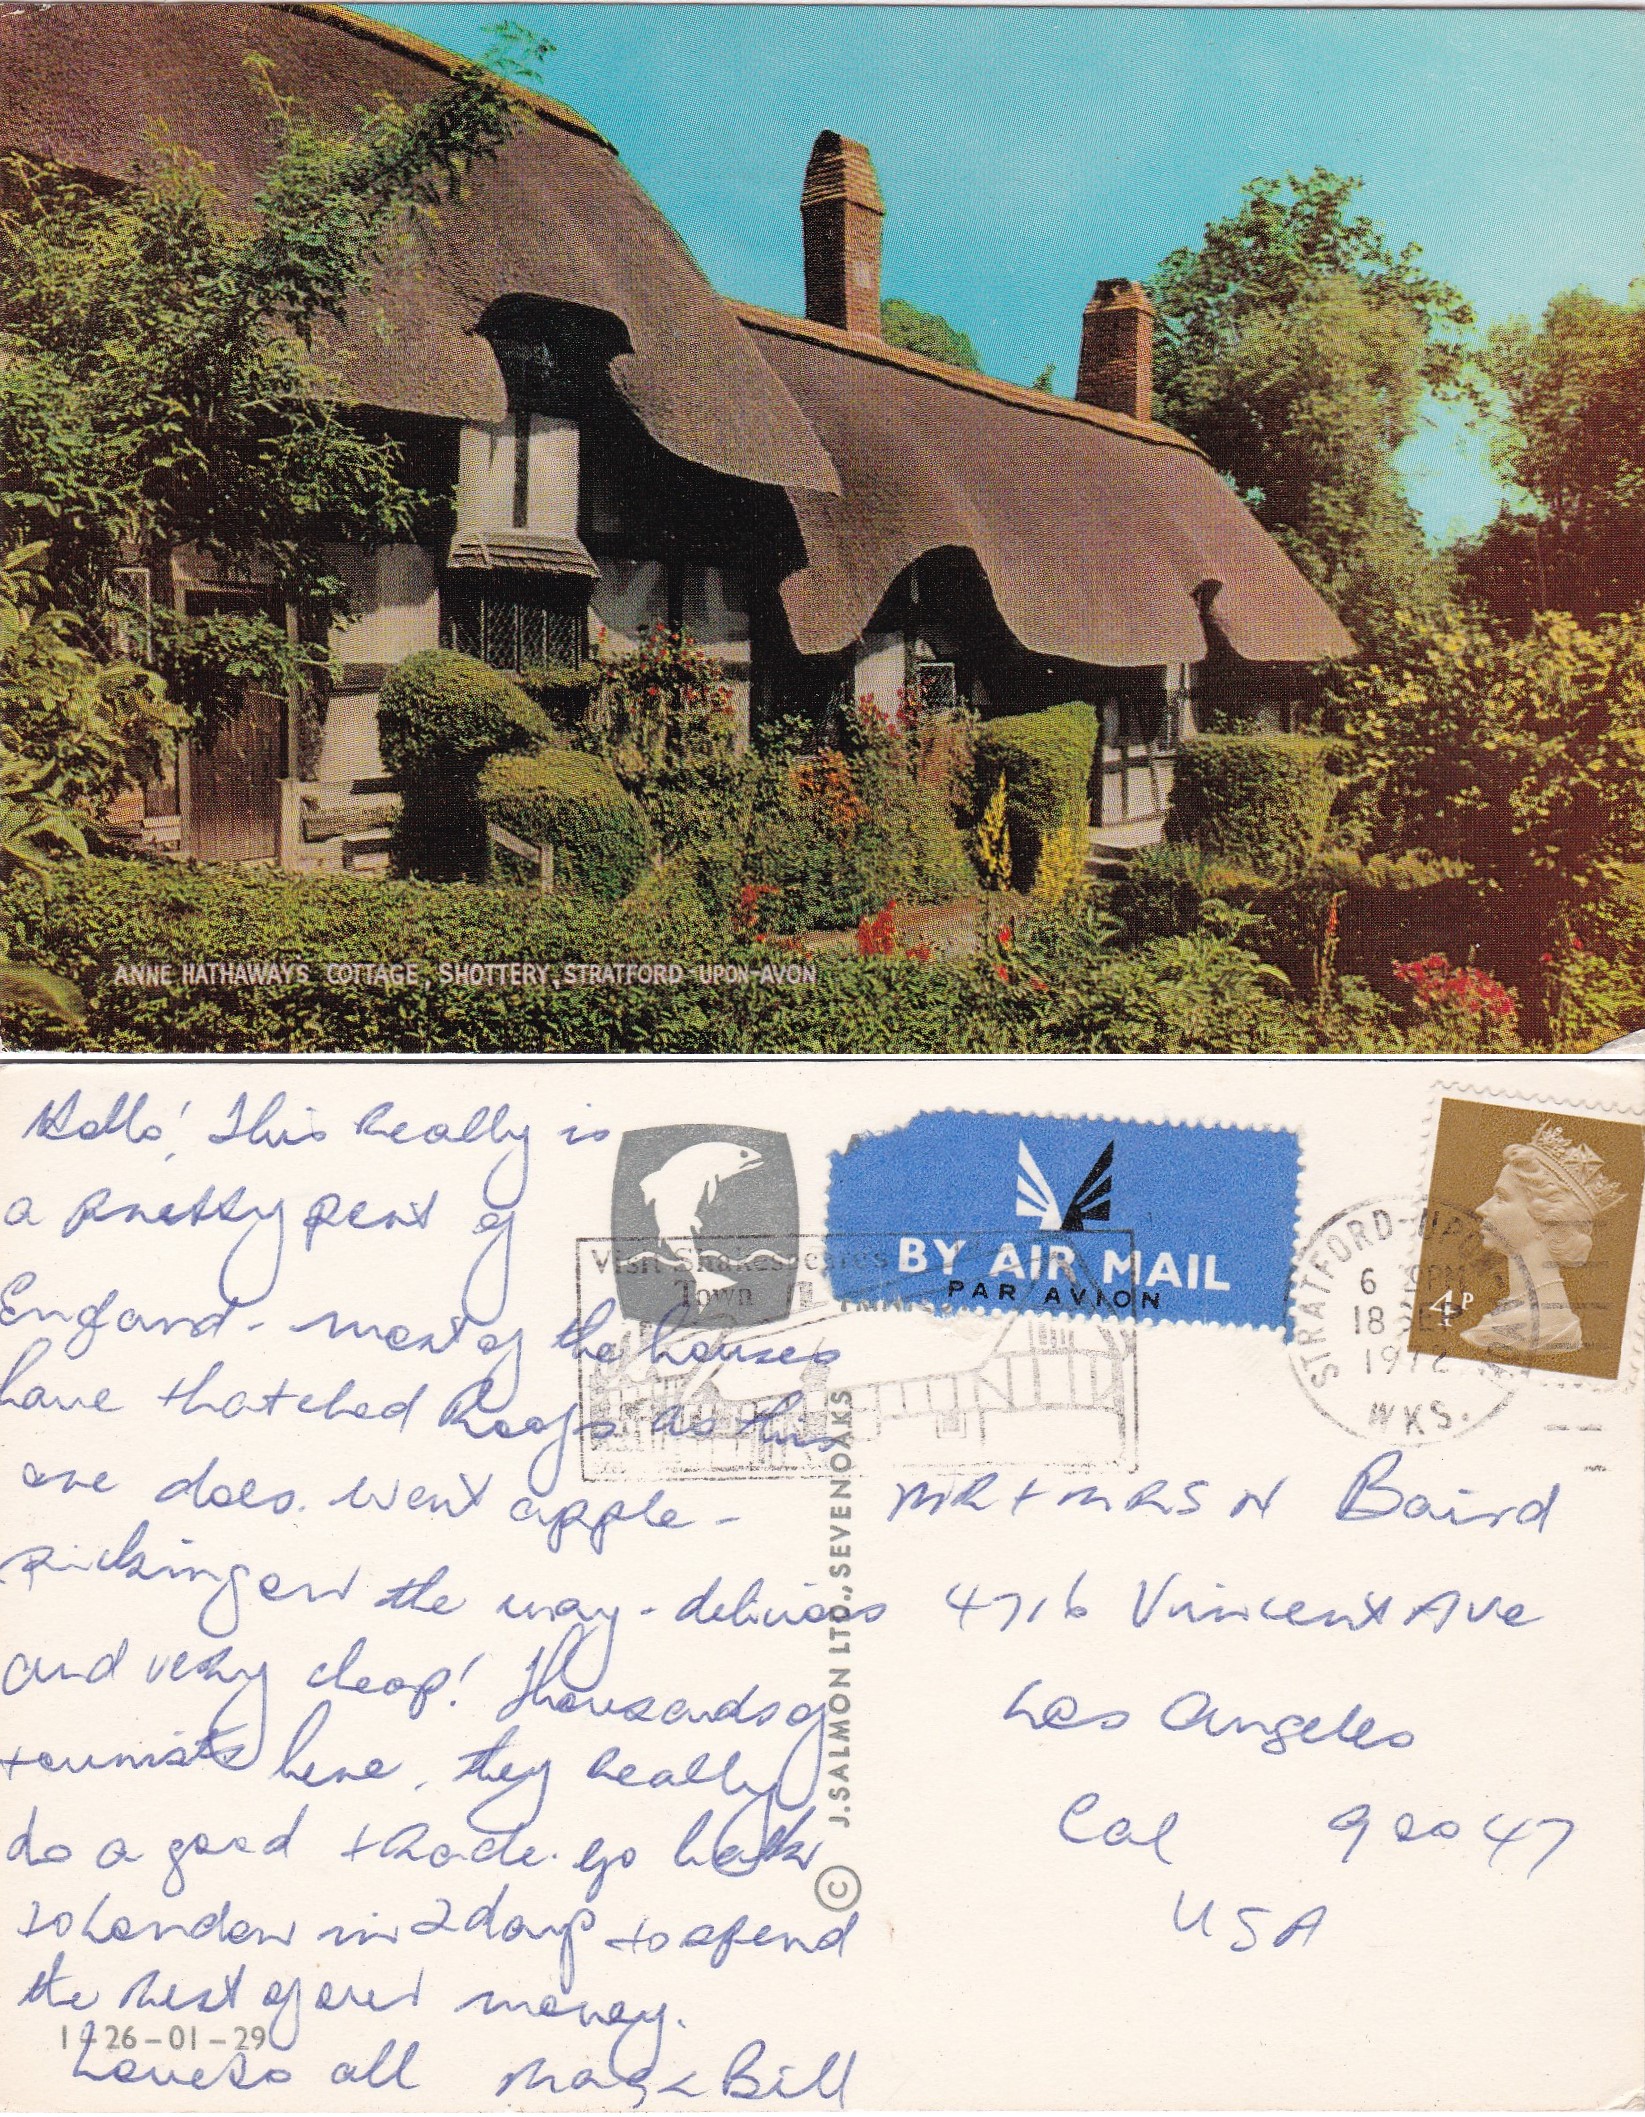 ANNE HATHAWAY'S COTTAGE, SHOTTERY, STRATFORD UPON-AVON
Hello! This Really is
a pretty part of
England - most of the houses
have thatched Roofs as this
one does. Went apple-
picking on the way - delicious
and very cheap! Thousands of
tourists here, they Really
do a good trade. Go back
to London in 2 days to spend
the Rest of our money.
Love to all Mary & Bill
1-26-01-29
Visit Shakespeare's
Town
BY AIR MAIL
PAR AVION
STRATFORD-UPON-AVON
6 PM
18 SEP
1972
WKS.
4P
J. SALMON LTD., SEVENOAKS ©
MR + MRS N Baird
4716 Vincent Ave
Los Angeles
Cal 90047
USA